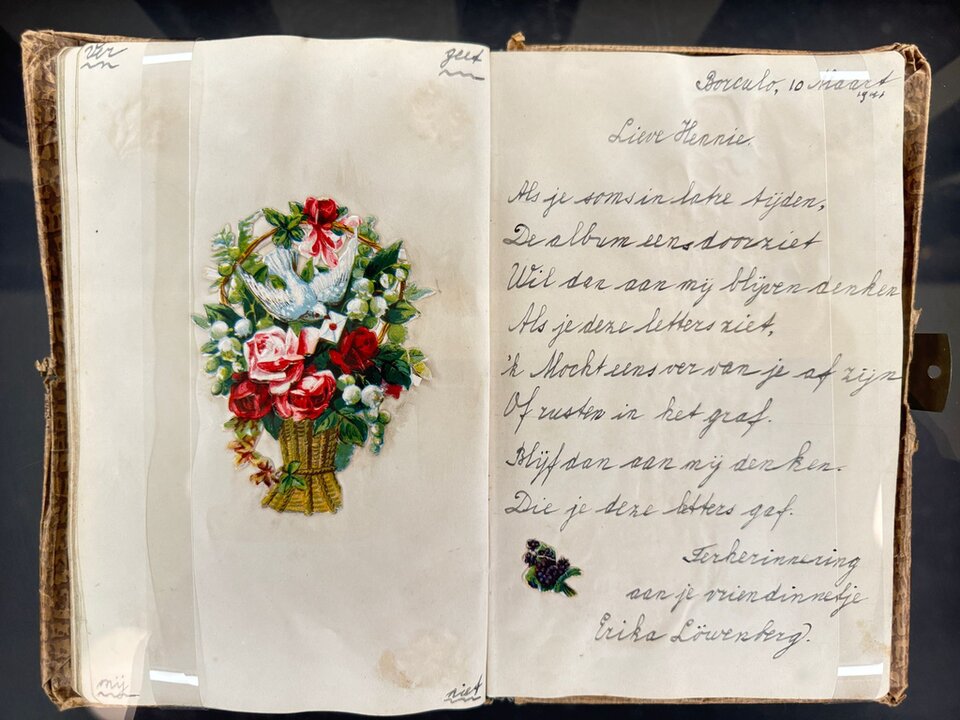 Ver geet
mij niet
Borculo, 10 Maart
1941
Lieve Hennie.
Als je soms in late tijden,
De album eens doorziet
Wil dan aan mij blijven denken
Als je deze letters ziet,
'k Mocht eens ver van je af zijn
Of rusten in het graf.
Blijf dan aan mij denken.
Die je deze letters gaf.
Terherinnering
aan je vriendinnetje
Erika Löwenberg.